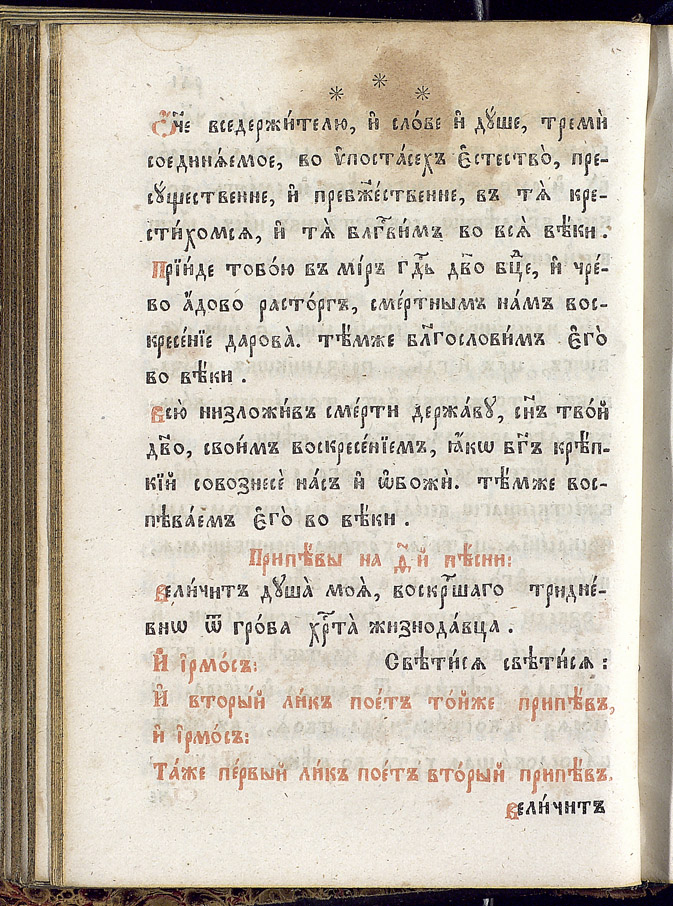 * * *
Ѻ҆́ч҃е вседержи́телю, и҆ сло́ве и҆ дꙋ́ше, тремѝ
соединѧ́емое, во ѵ҆поста́сехъ Є҆стество̀, пре-
сꙋ́щественне, и҆ пребж҃е́ственне, въ тѧ̀ кре-
сти́хомсѧ, и҆ тѧ̀ блгⷭ҇ви́мъ во всѧ̀ вѣ́ки .
Прїи́де тобо́ю въ мі́ръ гдⷭ҇ь дв҃о бцⷣе, и҆ чре́-
во а҆́дово расто́ргъ, сме́ртнымъ на́мъ вос-
кресе́нїе дарова̀. тѣ́мже блг҃ослови́мъ Є҆го̀
во вѣ́ки .
Всю̀ низложи́въ сме́рти держа́вꙋ, сн҃ъ тво́й
дв҃о, свои́мъ воскресе́нїемъ, ꙗ҆́кѡ бг҃ъ крѣ́п-
кїй совознесѐ на́съ и҆ ѡ҆божѝ. тѣ́мже вос-
пѣва́емъ Є҆го̀ во вѣ́ки .
Припѣ́вы на д҃_й пѣ́сни:
Вели́читъ дꙋша̀ моѧ̀, воскрⷭ҇шаго тридне́-
внѡ ѿ гро́ба хрⷭ҇та̀ жизнода́вца .
И҆ і҆рмо́съ: Свѣти́сѧ свѣти́сѧ :
И҆ вторы́й ли́къ пое́тъ то́йже припѣ́въ,
и҆ і҆рмо́съ:
Та́же пе́рвый ли́къ пое́тъ вто́рый припѣ́въ.
Вели́читъ